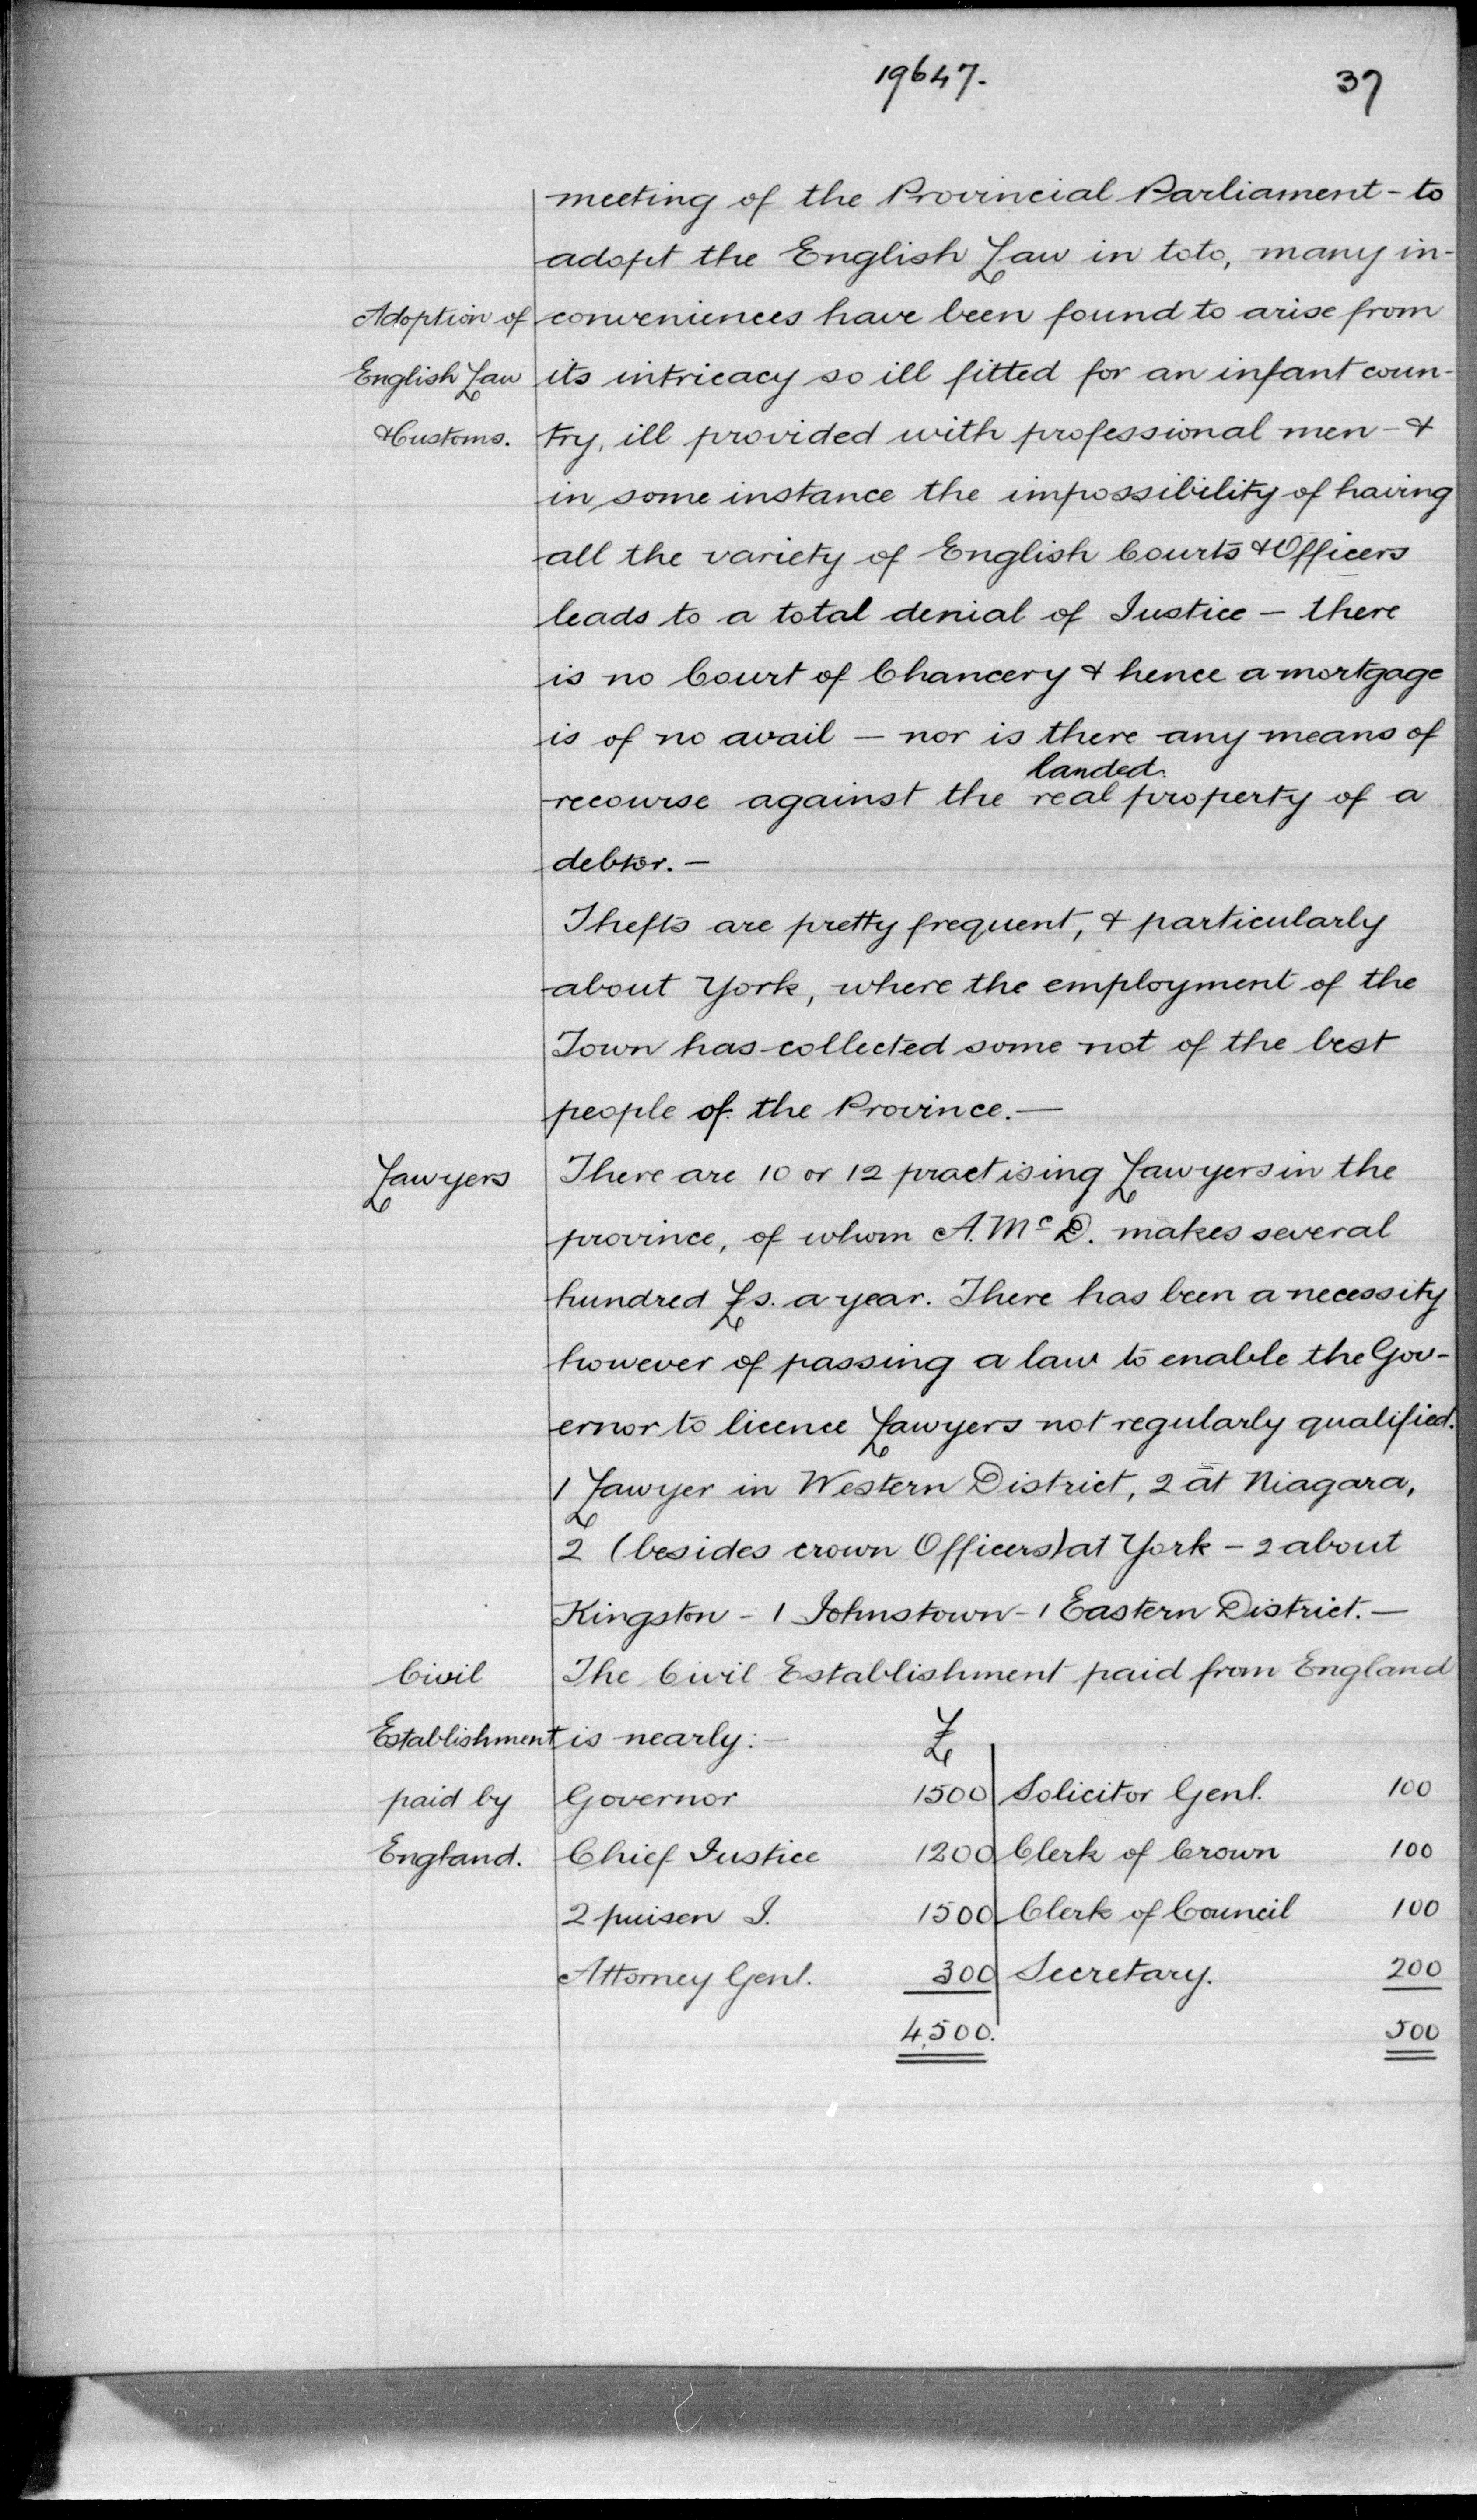 19647.
37
meeting of the Provincial Parliament - to
adopt the English Law in toto, many in-
Adoption of conveniences have been found to arise from
English Law its intricacy so ill fitted for an infant coun-
& Customs. try, ill provided with professional men - &
in some instance the impossibility of having
all the variety of English Courts & Officers
leads to a total denial of Justice - there
is no Court of Chancery & hence a mortgage
is of no avail - nor is there any means of
landed
recourse against the real property of a
debtor. -
Thefts are pretty frequent, & particularly
about York, where the employment of the
Town has collected some not of the best
people of the Province. -
Lawyers There are 10 or 12 practising Lawyers in the
province, of whom A. McD. makes several
hundred £s. a year. There has been a necessity
however of passing a law to enable the Gov-
ernor to licence Lawyers not regularly qualified.
1 Lawyer in Western District, 2 at Niagara,
2 (besides crown Officers) at York - 2 about
Kingston - 1 Johnstown - 1 Eastern District. -
Civil The Civil Establishment paid from England
Establishment is nearly: - £
paid by Governor 1500 Solicitor Genl. 100
England. Chief Justice 1200 Clerk of Crown 100
2 puisen J. 1500 Clerk of Council 100
Attorney Genl. 300 Secretary. 200
4,500. 500